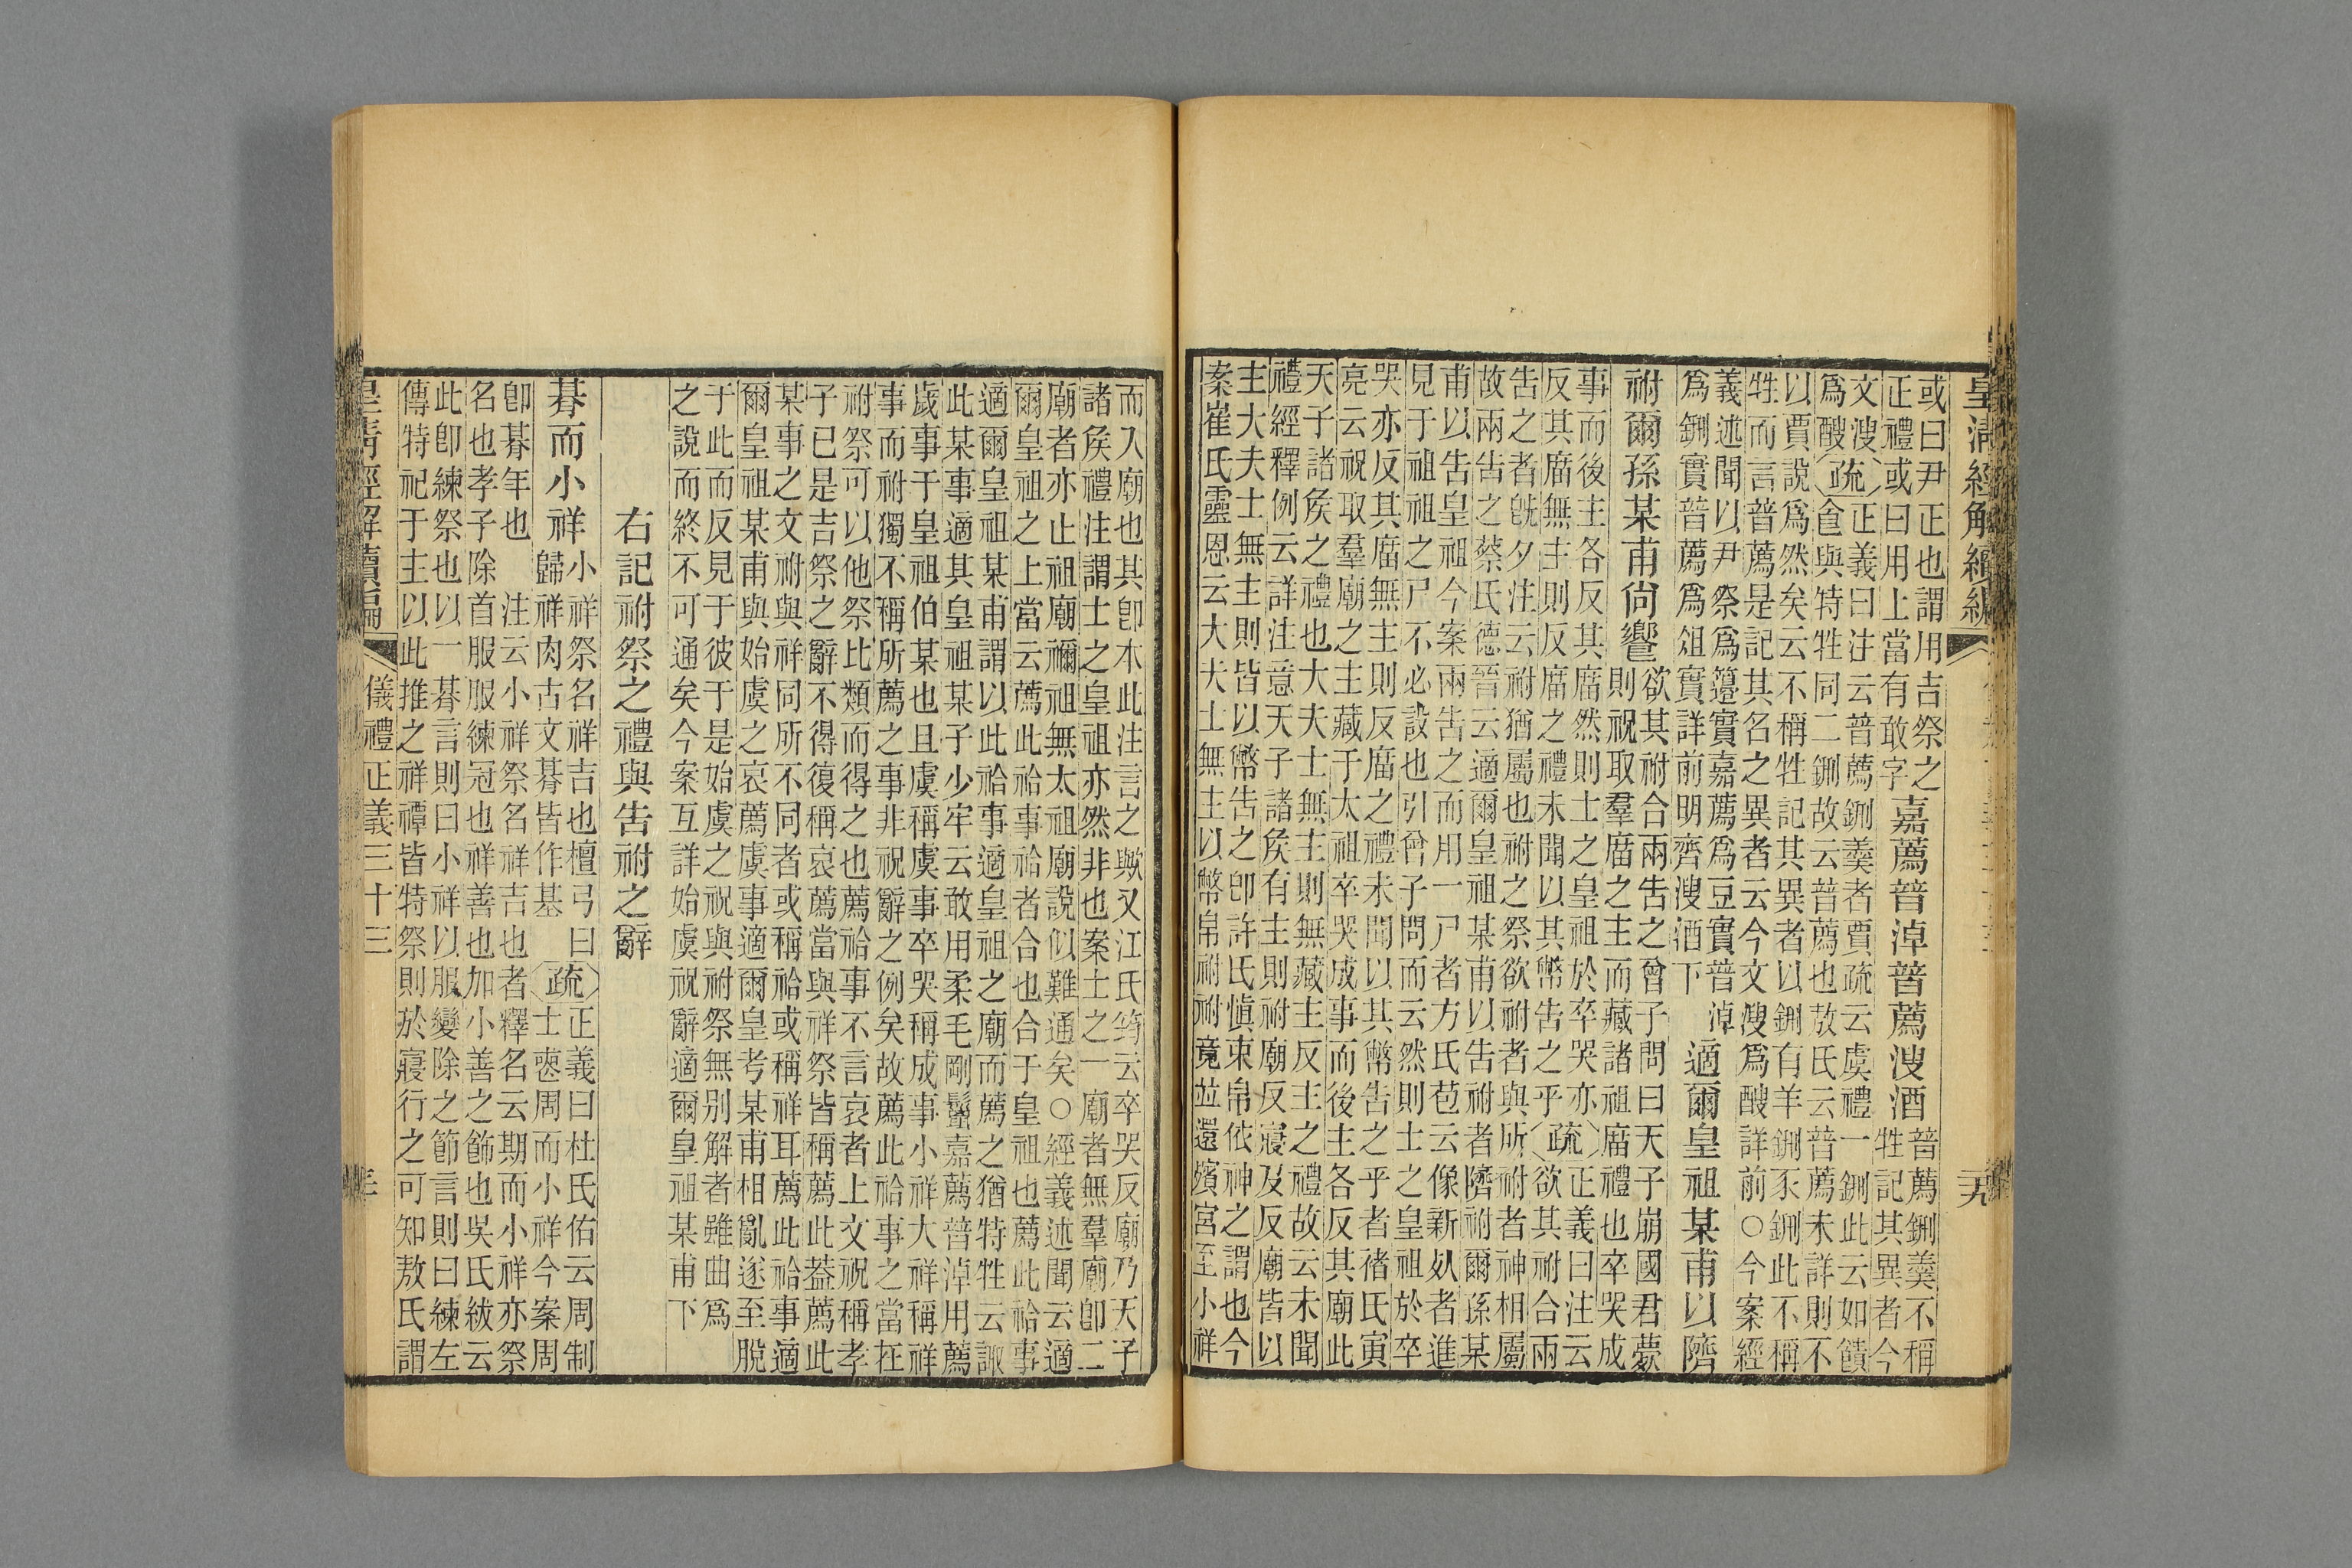 皇清經解續編
或曰尹正也謂用吉祭之
正禮或曰用上當有敢字
嘉薦普淖普薦溲酒
普薦鉶羹不稱
牲記其異者今
文溲
爲醙
疏
正義曰注云普薦鉶羹者賈疏云虞禮一鉶此云如饋
食與特牲同二鉶故云普薦也敖氏云普薦未詳則不
以賈說爲然矣云不稱牲記其異者以鉶有羊鉶豕鉶此不稱
牲而言普薦是記其名之異者云今文溲爲醙詳前○今案經
義述聞以尹祭爲籩實嘉薦爲豆實普淖
爲鉶實普薦爲俎實詳前明齊溲酒下
適爾皇祖某甫以隮
祔爾孫某甫尙饗
欲其祔合兩告之曾子問曰天子崩國君薨
則祝取羣廟之主而藏諸祖廟禮也卒哭成
事而後主各反其廟然則士之皇祖於卒哭亦
反其廟無主則反廟之禮未聞以其幣告之乎
疏
正義曰注云
欲其祔合兩
告之者旣夕注云祔猶屬也祔之祭欲祔者與所祔者神相屬
故兩告之蔡氏德晉云適爾皇祖某甫以告祔者隮祔爾孫某
甫以告皇祖今案兩告之而用一尸者方氏苞云像新死者進
見于祖祖之尸不必設也引曾子問而云然則士之皇祖於卒
哭亦反其廟無主則反廟之禮未聞以其幣告之乎者褚氏寅
亮云祝取羣廟之主藏于太祖卒哭成事而後主各反其廟此
天子諸矦之禮也大夫士無主則無藏主反主之禮故云未聞
禮經釋例云詳注意天子諸矦有主則祔廟反寢及反廟皆以
主大夫士無主則皆以幣告之卽許氏愼束帛依神之謂也今
案崔氏靈恩云大夫士無主以幣帛祔祔竟並還殯宮至小祥
而入廟也其卽本此注言之歟又江氏筠云卒哭反廟乃天子
諸矦禮注謂士之皇祖亦然非也案士之一廟者無羣廟卽二
廟者亦止祖廟禰祖無太祖廟說似難通矣○經義述聞云適
爾皇祖之上當云薦此祫事祫者合也合于皇祖也薦此祫事
適爾皇祖某甫謂以此祫事適皇祖之廟而薦之猶特牲云諏
此某事適其皇祖某子少牢云敢用柔毛剛鬣嘉薦普淖用薦
歲事于皇祖伯某也且虞稱虞事卒哭稱成事小祥大祥稱祥
事而祔獨不稱所薦之事非祝辭之例矣故薦此祫事之當在
祔祭可以他祭比類而得之也薦祫事不言哀者上文祝稱孝
子已是吉祭之辭不得復稱哀薦當與祥祭皆稱薦此葢薦此
某事之文祔與祥同所不同者或稱祫或稱祥耳薦此祫事適
爾皇祖某甫與始虞之哀薦虞事適爾皇考某甫相亂遂至脫
于此而反見于彼于是始虞之祝與祔祭無別解者雖曲爲
之說而終不可通矣今案互詳始虞祝辭適爾皇祖某甫下
右記祔祭之禮與告祔之辭
朞而小祥
小祥祭名祥吉也檀弓曰
歸祥肉古文朞皆作基
疏
正義曰杜氏佑云周制
士喪周而小祥今案周
卽朞年也注云小祥祭名祥吉也者釋名云期而小祥亦祭
名也孝子除首服服練冠也祥善也加小善之飾也吳氏紱云
此卽練祭也以一朞言則曰小祥以服變除之節言則曰練左
傳特祀于主以此推之祥禫皆特祭則於寢行之可知敖氏謂
皇淸經解續編
儀禮正義三十三